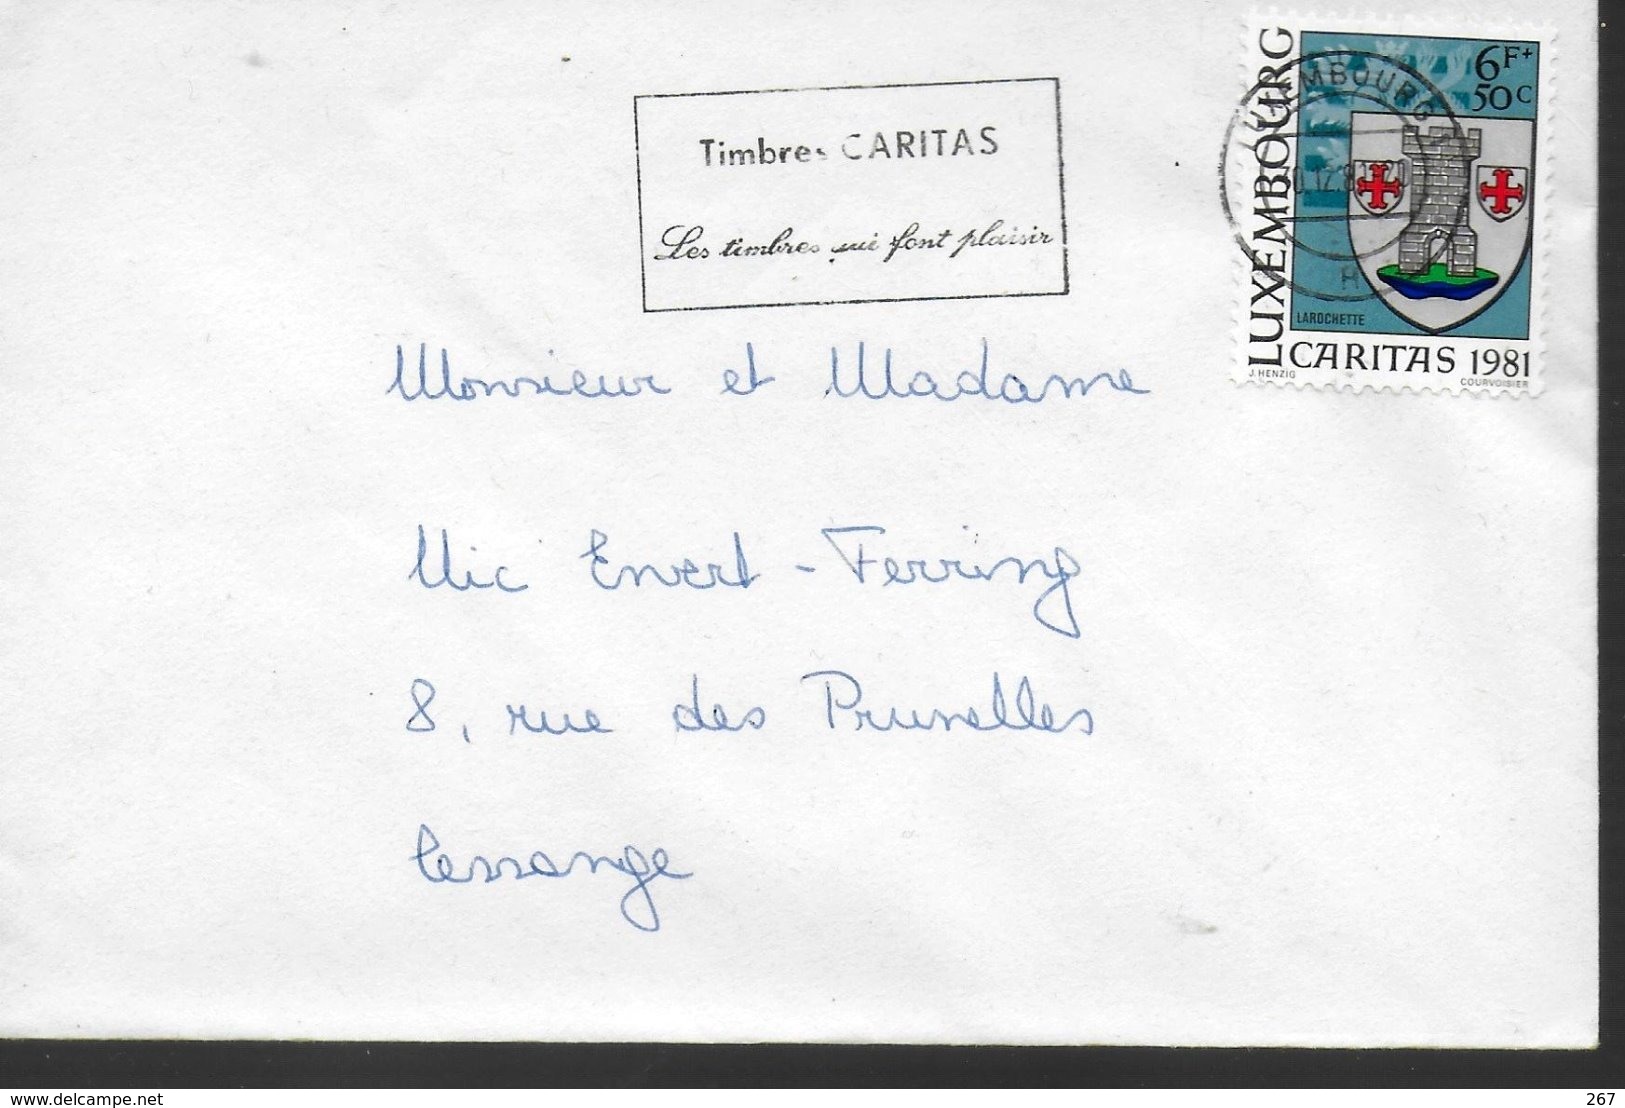 Timbres CARITAS
Les timbres qui font plaisir
LUXEMBOURG
6F+
50C
LUXEMBOURG
LAROCHETTE
CARITAS 1981
J. HENZIG
COURVOISIER
Monsieur et Madame
Nic Evert - Ferring
8, rue des Prunelles
Cessange
www.delcampe.net
267